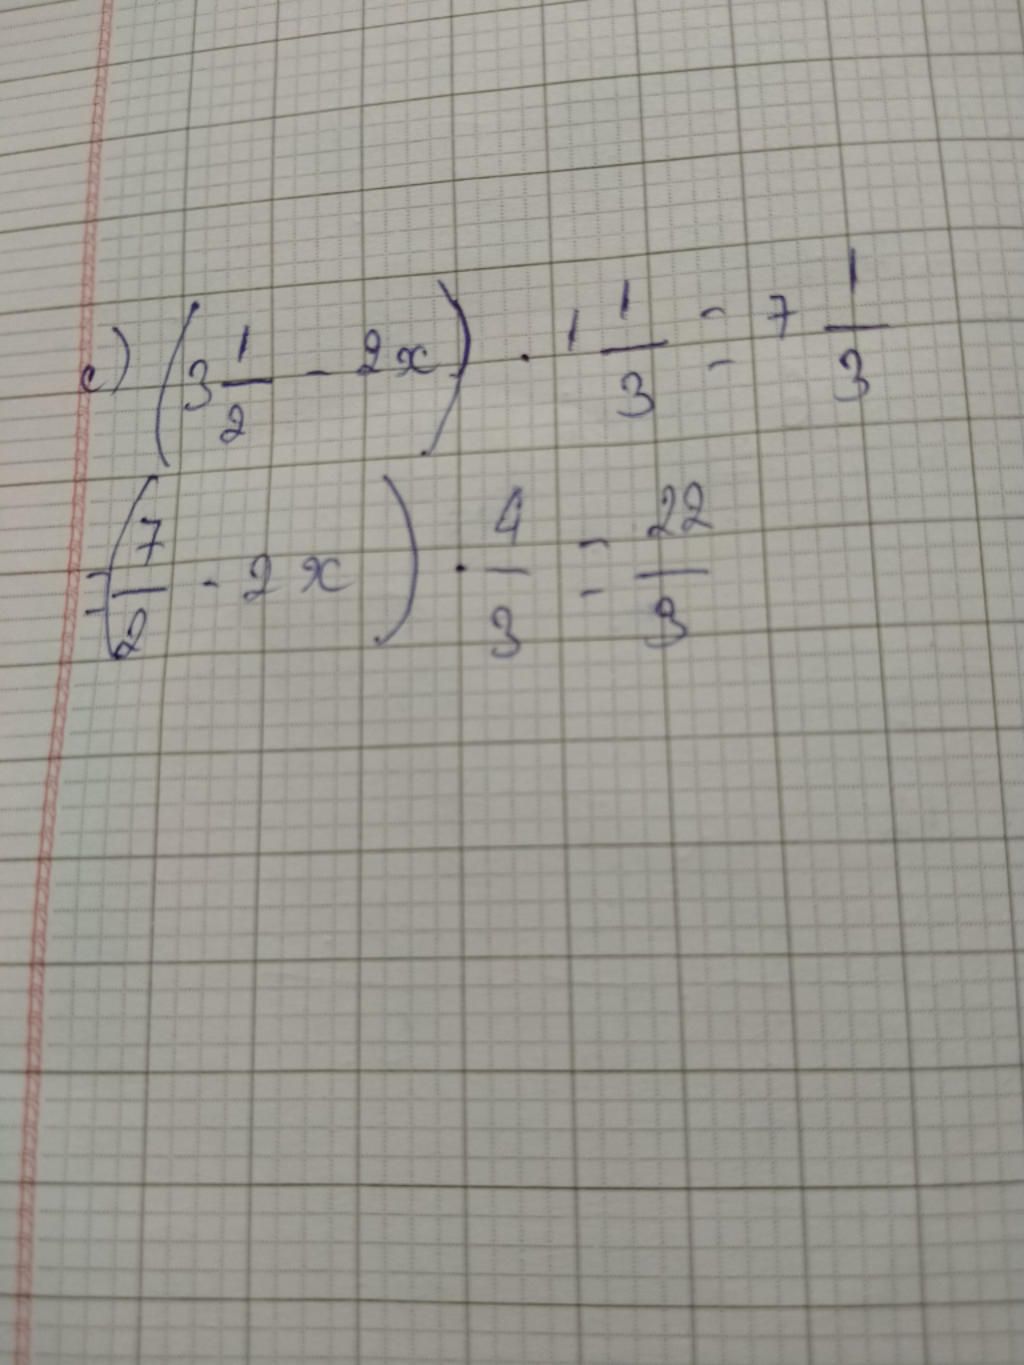 c) (3 1/2 - 2x) . 1 1/3 = 7 1/3
= (7/2 - 2x) . 4/3 = 22/3